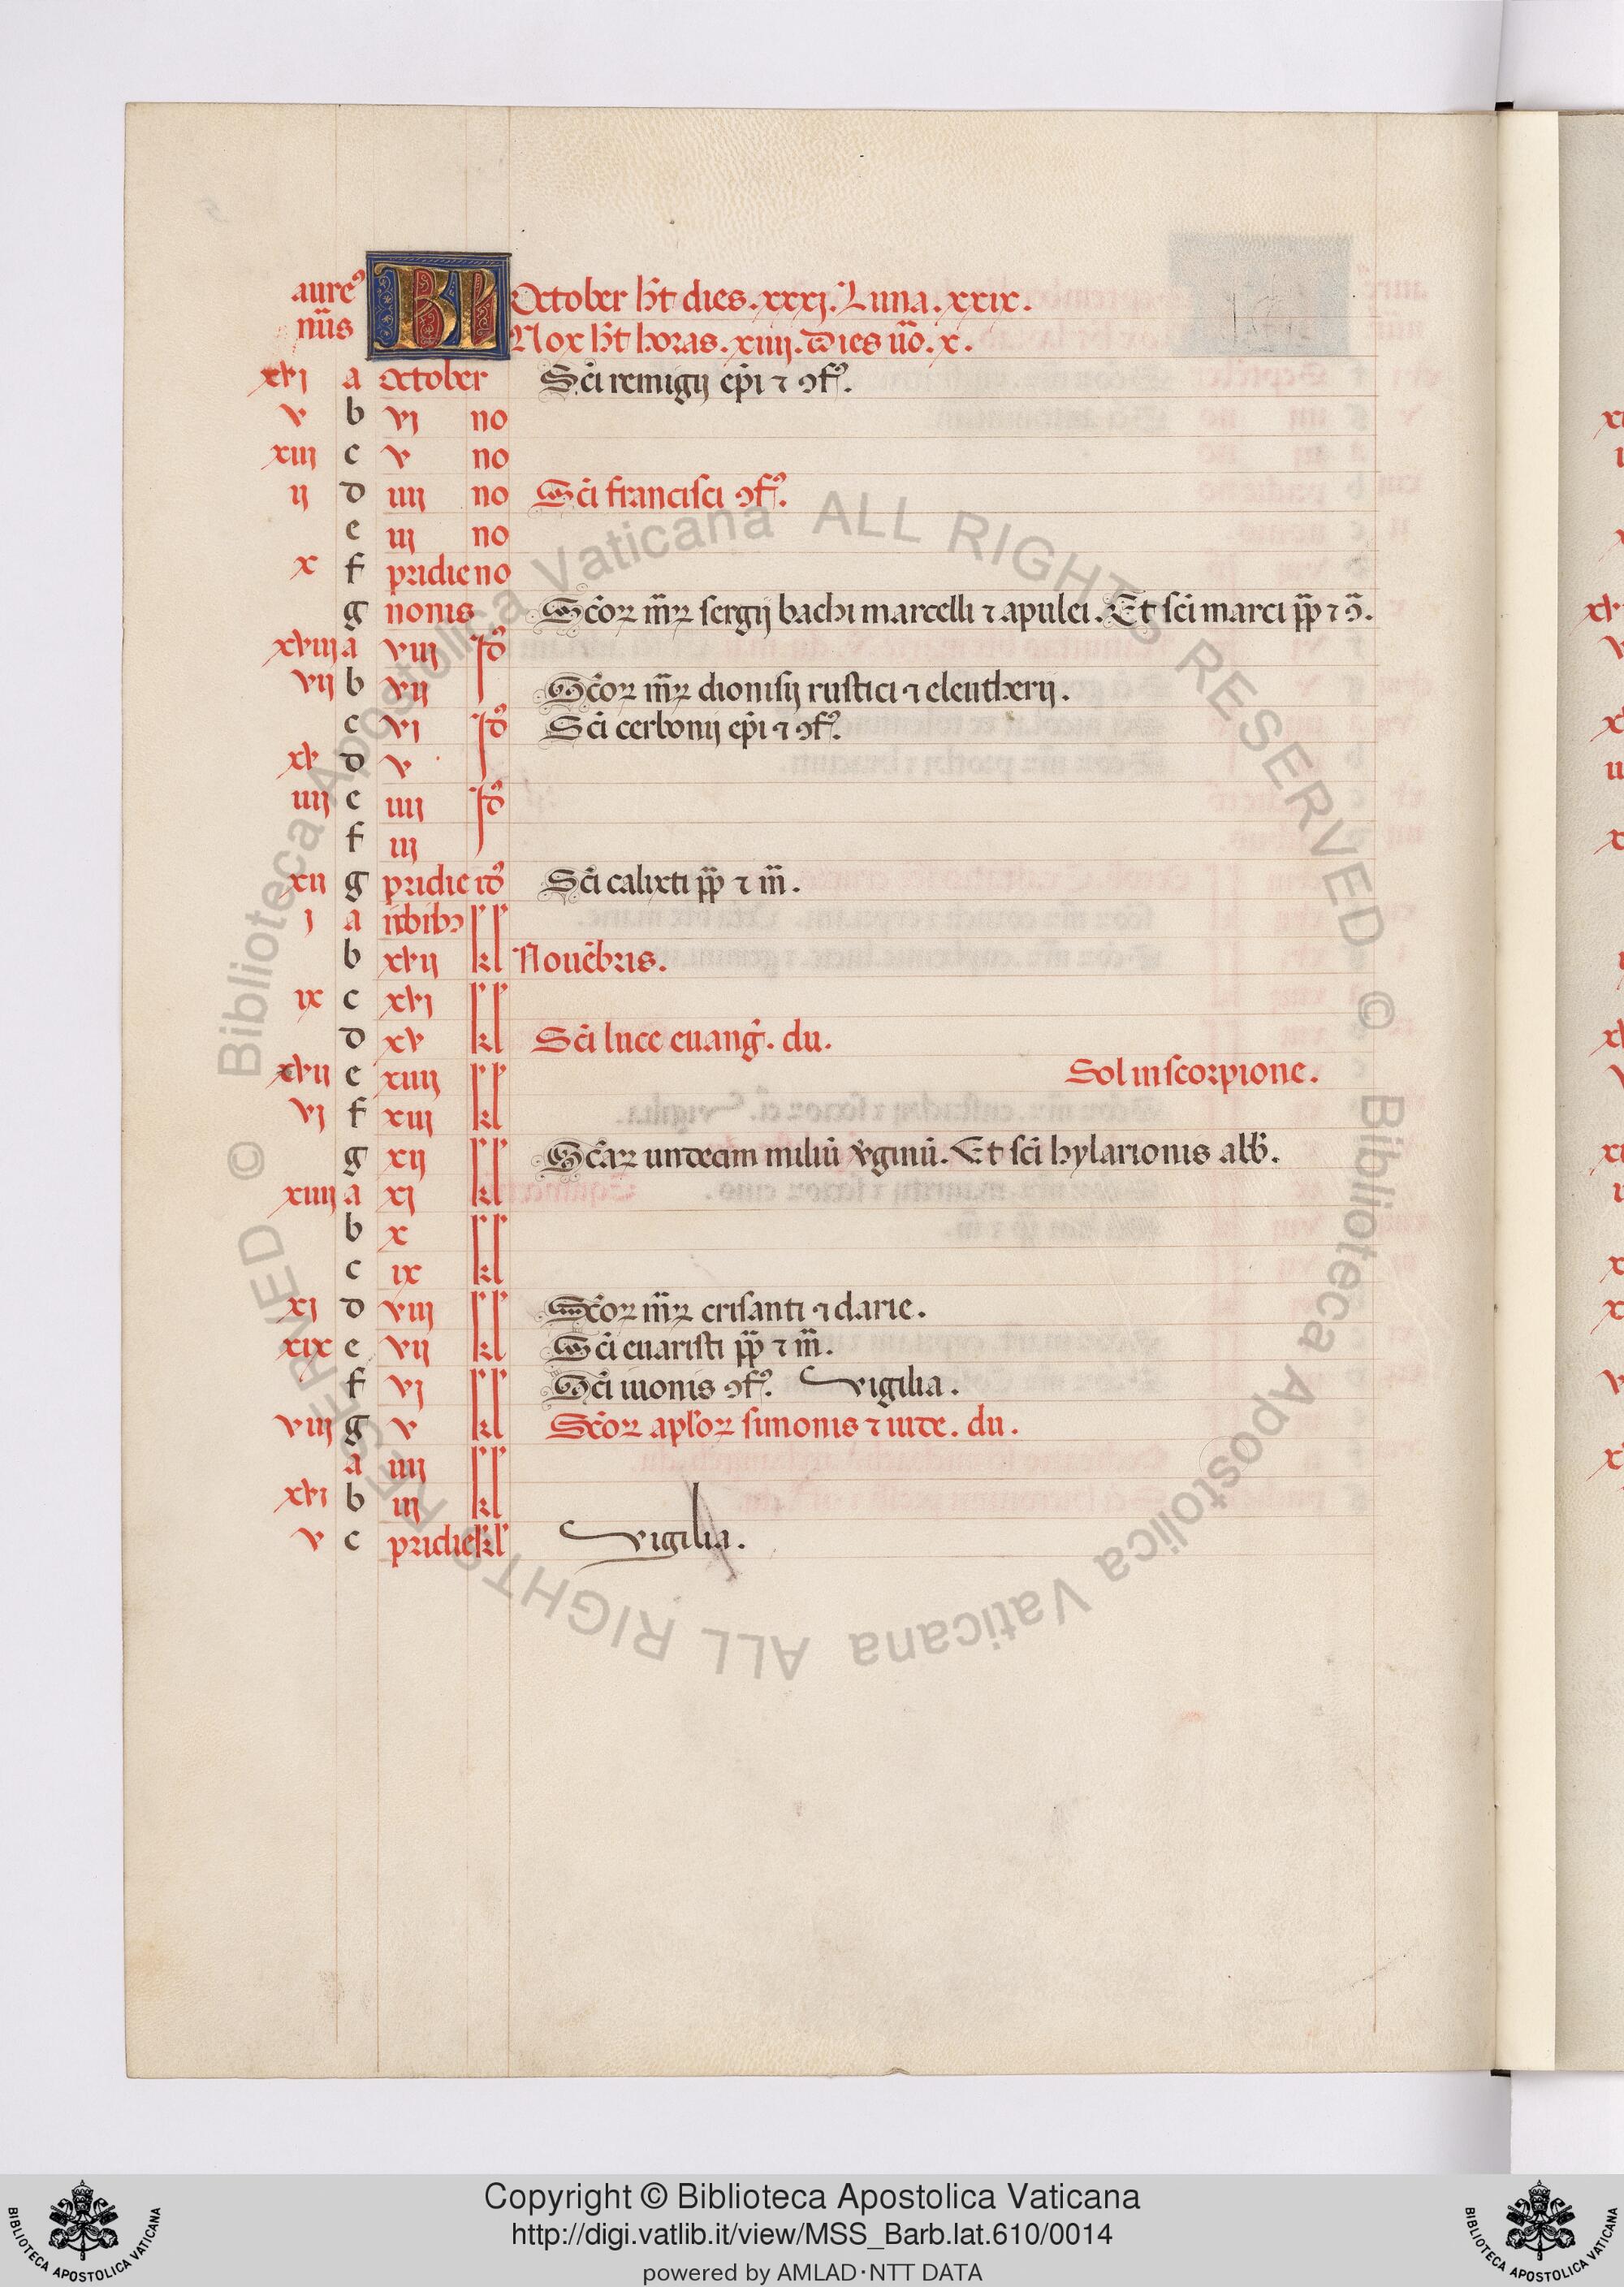 aure⁹ Kl October h̄t dies . xxxj . Luna . xxix .
nūs Nox h̄t horas . xiiij . dies ūo . x .
xvj a october Sc̄i remigij ep̄i ⁊ ꝯf⁹.
v b vj no
xiij c v no
ij d iiij no Sc̄i francisci ꝯf⁹.
e iij no
x f pridie no
g nonis Sc̄oꝝ m̄ꝝ sergij bachi marcelli ⁊ apulei . Et sc̄i marci pp̄ ⁊ ꝯ̄.
xviij a viij Id⁹
vij b vij Sc̄oꝝ m̄ꝝ dionisij rustici ⁊ eleutherij .
c vj Id⁹ Sc̄i cerbonij ep̄i ⁊ ꝯf⁹.
xv d v
iiij e iiij Id⁹
f iij
xij g pridie id⁹ Sc̄i calixti pp̄ ⁊ m̄ .
j a idibꝫ
b xvij kl Nouēbris .
ix c xvj
d xv kl Sc̄i luce euanḡ . du .
xvij e xiiij Sol in scorpione .
vj f xiij kl
g xij Sc̄aꝝ undecim miliū v̾ginū . Et sc̄i hylarionis abb̄ .
xiiij a xj kl
b x
c ix kl
xj d viij Sc̄oꝝ m̄ꝝ crisanti ⁊ darie .
xix e vij kl Sc̄i euaristi pp̄ ⁊ m̄ .
f vj Sc̄i iuonis ꝯf⁹. Vigilia .
viij g v kl Sc̄oꝝ apl̄oꝝ simonis ⁊ iude . du .
a iiij
xvj b iij kl
v c pridie kl Vigilia .
Copyright © Biblioteca Apostolica Vaticana
http://digi.vatlib.it/view/MSS_Barb.lat.610/0014
powered by AMLAD·NTT DATA
© Biblioteca Apostolica Vaticana ALL RIGHTS RESERVED
© Biblioteca Apostolica Vaticana ALL RIGHTS RESERVED
BIBLIOTECA APOSTOLICA VATICANA
BIBLIOTECA APOSTOLICA VATICANA